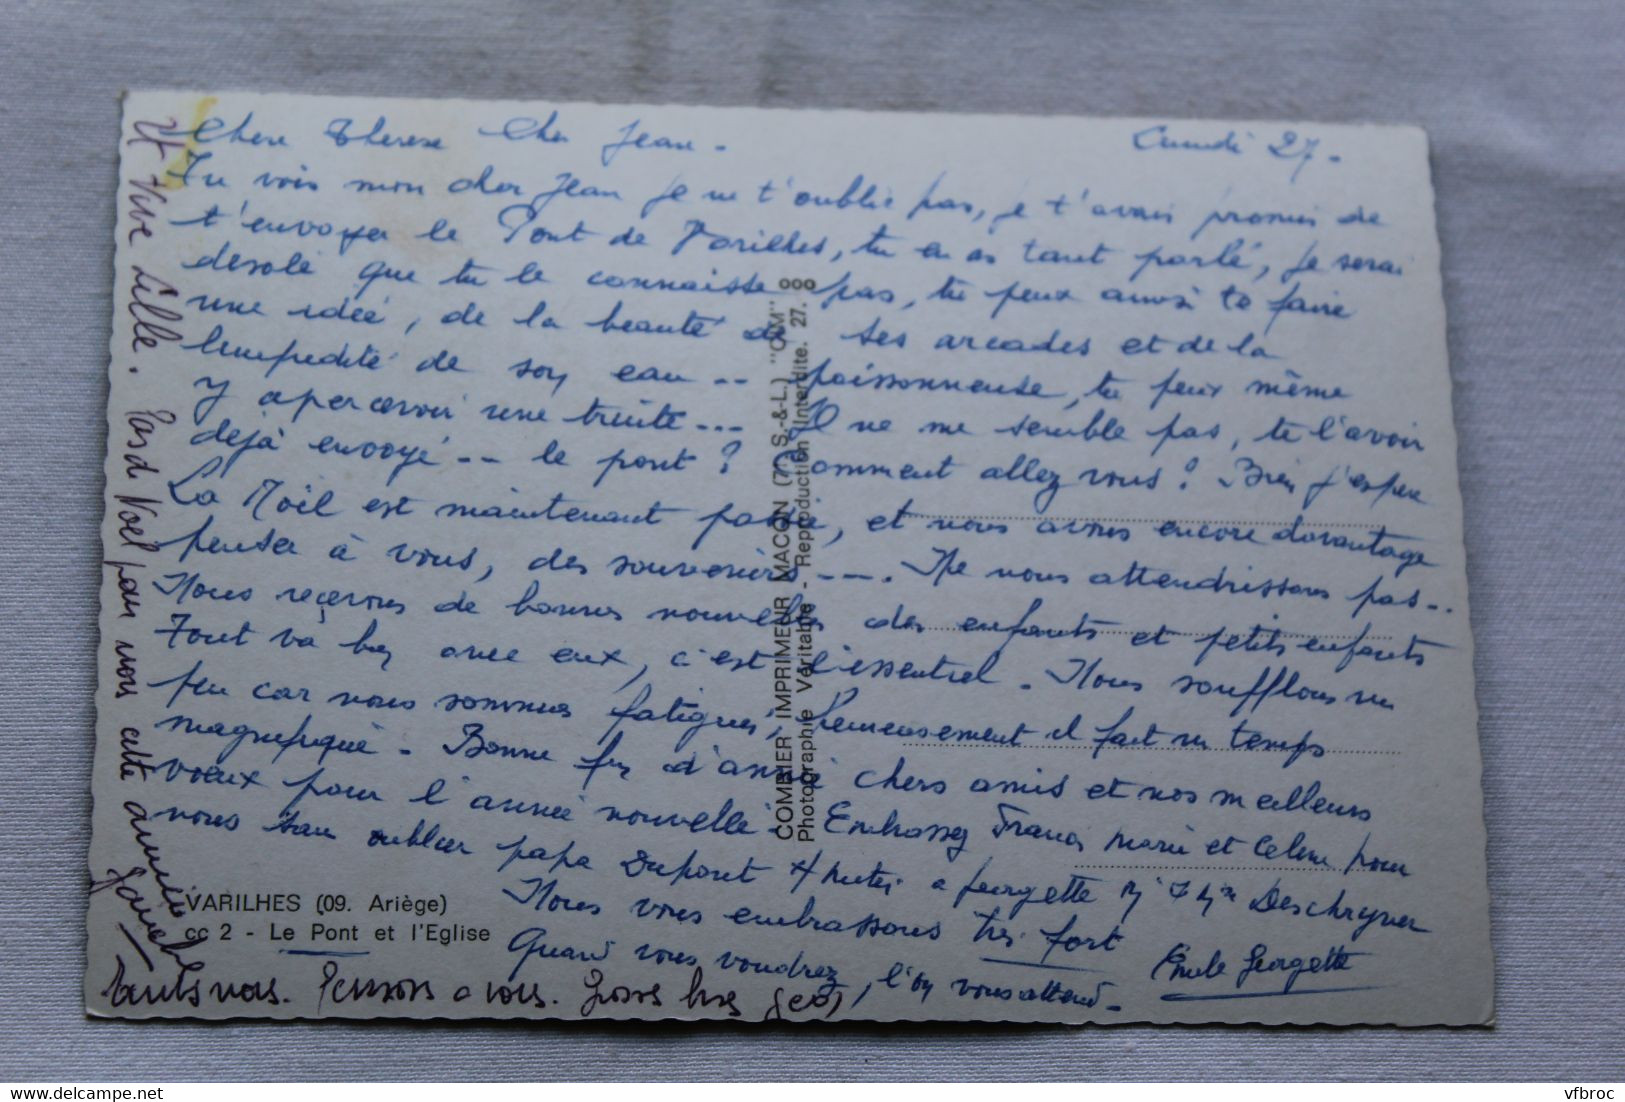 Chere Therese Cher Jean - Lundi 27 -
Tu vois mon cher Jean je ne t'oublie pas, je t'avais promis de
t'envoyer le Pont de Varilhes, tu en as tant parlé, je serai
desolé que tu le connaisse pas, tu peux ainsi te faire
une idée, de la beauté de ses arcades et de la
limpidité de son eau -- poissonneuse, tu peux même
y apercevoir une truite --- Il ne me semble pas, te l'avoir
déjà envoyé -- le pont ? Comment allez vous ? Bien j'espere
La Noël est maintenant passée, et nous avons encore davantage
penser à vous, des souvenirs ---. Ne nous attendrissons pas --
Nous reçevons de bonnes nouvelles des enfants et petits enfants
Tout va bien avec eux, c'est l'essentiel - Nous soufflons un
peu car nous sommes fatigués, heureusement il fait un temps
magnifique - Bonne fin d'année chers amis et nos meilleurs
voeux pour l'année nouvelle. Embrassez Francis Marie et Celine pour
nous sans oublier papa Dupont Deschryver
Nous vous embrassons très fort
Quand vous voudrez, l'on vous attend - Emile Georgette
VARILHES (09. Ariège)
cc 2 - Le Pont et l'Eglise
COMBIER IMPRIMEUR MACON (71 S.-&-L.) "CIM"
Photographie Véritable - Reproduction Interdite. 27.
et vive Lille. Pas de Noël pour nous cette année
Pensons a vous. Gros bis